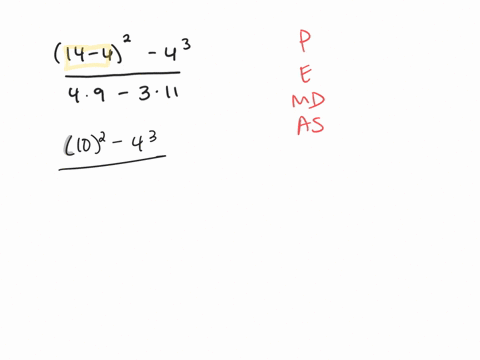 (14-4)² - 4³
4·9 - 3·11
(10)² - 4³
P
E
MD
AS